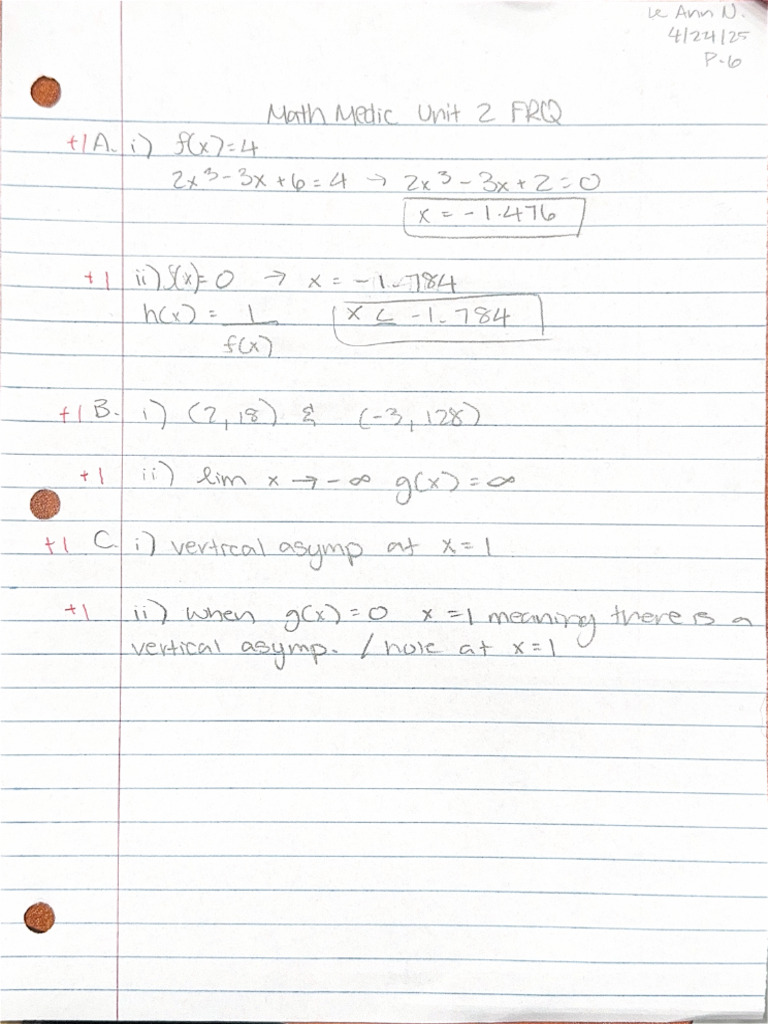 Le Ann N.
4/24/25
P-6
Math Medic Unit 2 FRQ
+1 A. i) f(x)=4
2x³-3x+6=4 → 2x³-3x+2=0
x = -1.476
+1 ii) f(x)=0 → x = -1.784
h(x) = 1/f(x) x < -1.784
+1 B. i) (2,18) & (-3,128)
+1 ii) lim x→-∞ g(x)=∞
+1 C. i) vertical asymp at x=1
+1 ii) when g(x)=0 x=1 meaning there is a
vertical asymp. / hole at x=1